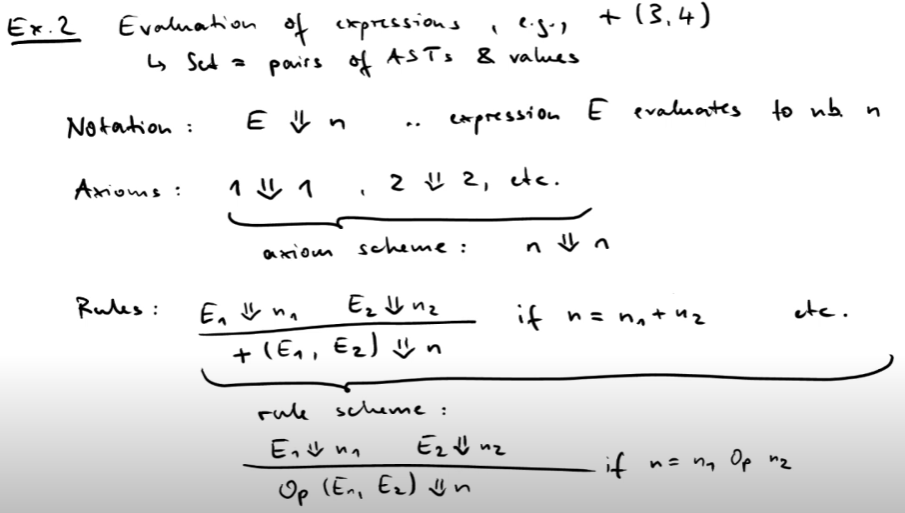 Ex. 2 Evaluation of expressions, e.g., + (3,4)
↳ Set = pairs of ASTs & values
Notation : E ⇓ n .. expression E evaluates to nb. n
Axioms : 1 ⇓ 1 , 2 ⇓ 2, etc.
axiom scheme : n ⇓ n
Rules : E₁ ⇓ n₁ E₂ ⇓ n₂ if n = n₁ + n₂ etc.
+ (E₁, E₂) ⇓ n
rule scheme :
E₁ ⇓ n₁ E₂ ⇓ n₂ if n = n₁ Op n₂
Op (E₁, E₂) ⇓ n